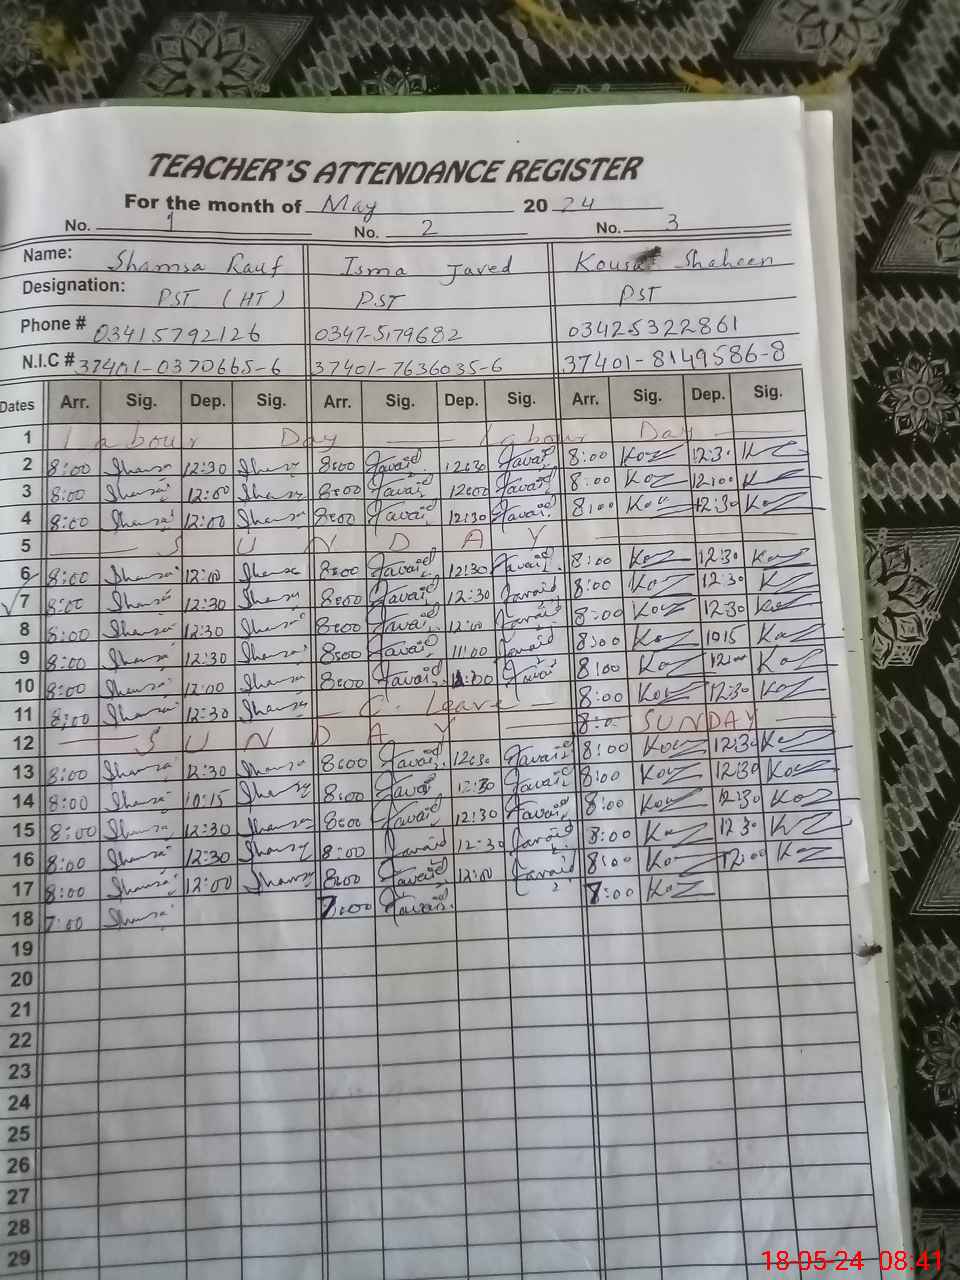 TEACHER'S ATTENDANCE REGISTER
For the month of May 2024
No. 1 No. 2 No. 3
Name: Shamsa Rauf Isma Javed Kousar Shaheen
Designation: PST (HT) P.ST PST
Phone # 03415792126 0347-5179682 03425322861
N.I.C # 37401-0370665-6 37401-7636035-6 37401-8149586-8
Dates Arr. Sig. Dep. Sig. Arr. Sig. Dep. Sig. Arr. Sig. Dep. Sig.
1 Labour Day Labour Day
2 8:00 Shamsa 12:30 Shamsa 8:00 Javaid 12:30 Javaid 8:00 12:30
3 8:00 Shamsa 12:00 Shamsa 8:00 Javaid 12:00 Javaid 8:00 12:00
4 8:00 Shamsa 12:00 Shamsa 8:00 Javaid 12:30 Javaid 8:00 12:30
5 SUNDAY
6 8:00 Shamsa 12:00 Shamsa 8:00 Javaid 12:30 Javaid 8:00 12:30
7 8:00 Shamsa 12:30 Shamsa 8:00 Javaid 12:30 Javaid 8:00 12:30
8 8:00 Shamsa 12:30 Shamsa 8:00 Javaid 12:00 Javaid 8:00 12:30
9 8:00 Shamsa 12:30 Shamsa 8:00 Javaid 11:00 Javaid 8:00 1015
10 8:00 Shamsa 12:00 Shamsa 8:00 Javaid Javaid 8:00
11 8:00 Shamsa 12:30 Shamsa C. Leave 8:00 12:30
12 SUNDAY 8: SUNDAY
13 8:00 Shamsa 12:30 Shamsa 8:00 Javaid 12:30 Javaid 8:00 12:30
14 8:00 Shamsa 10:15 Shamsa 8:00 Javaid 12:30 Javaid 8:00 12:30
15 8:00 Shamsa 12:30 Shamsa 8:00 Javaid 12:30 Javaid 8:00 12:30
16 8:00 Shamsa 12:30 Shamsa 8:00 Javaid 12:30 Javaid 8:00 12:30
17 8:00 Shamsa 12:00 Shamsa 8:00 Javaid 12:00 Javaid 8:00 12:00
18 7:00 Shamsa 7:00 Javaid 7:00
19
20
21
22
23
24
25
26
27
28
29
18-05-24 08:41